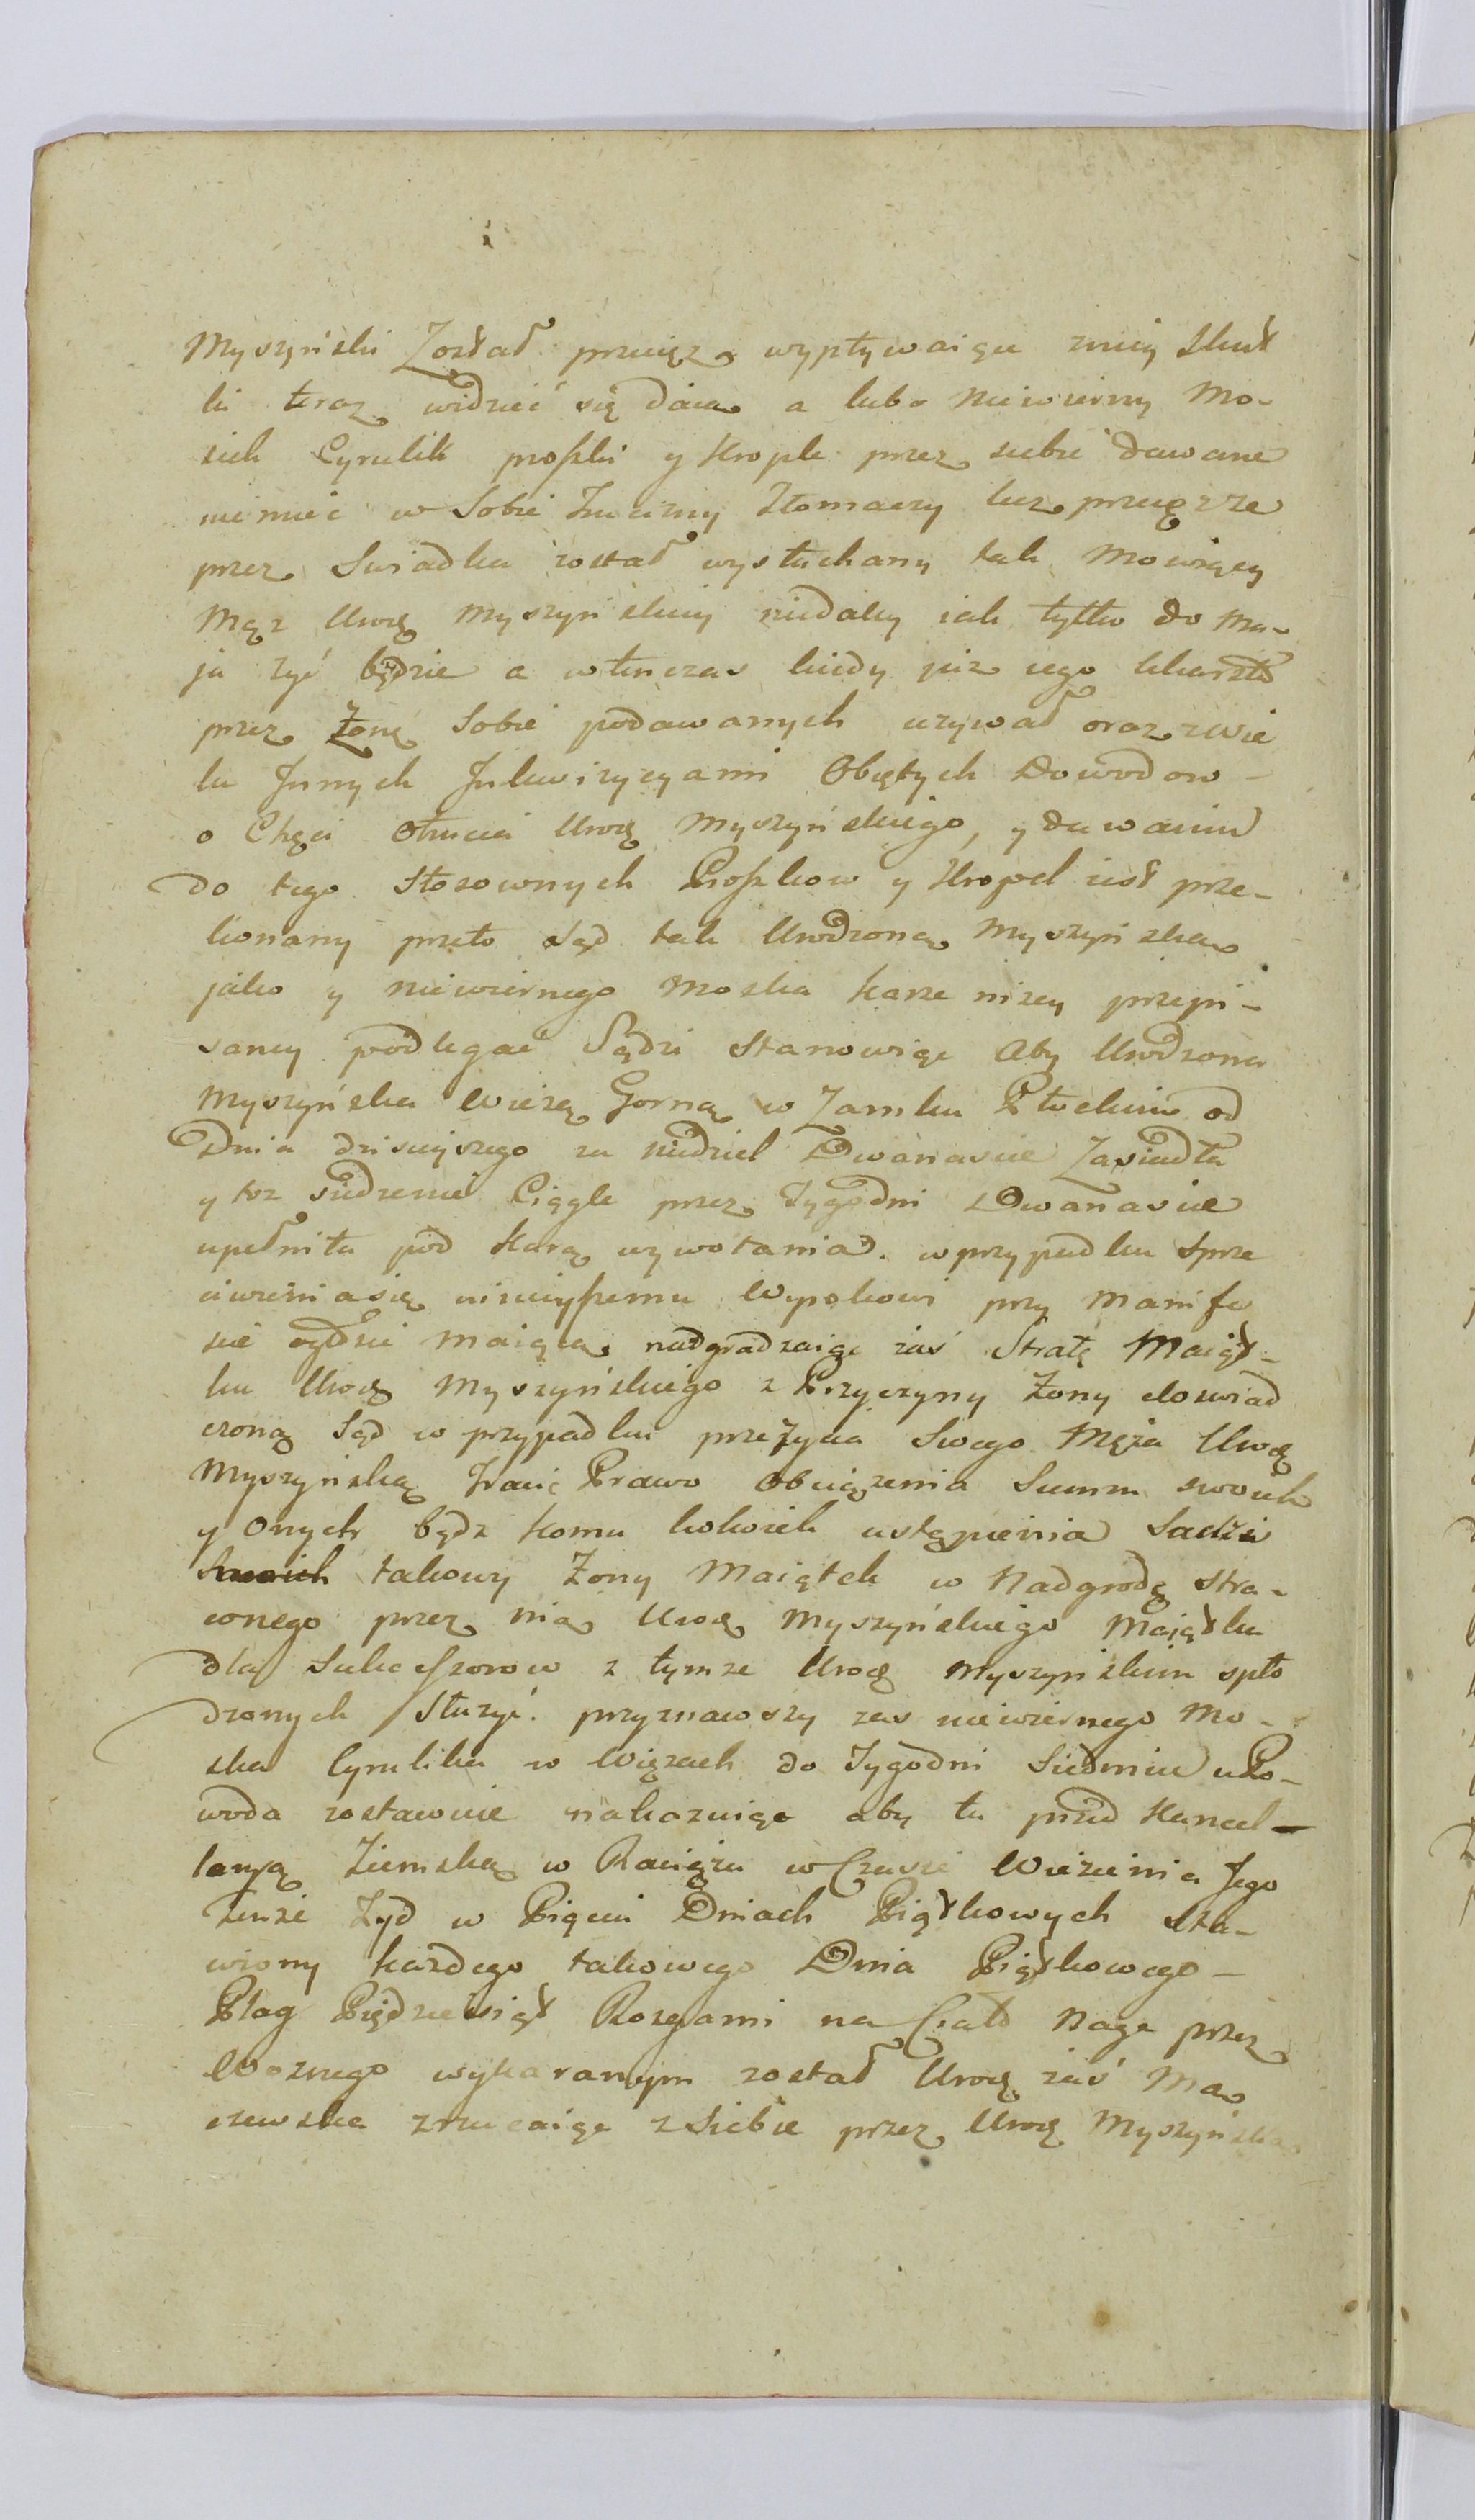 Myszyński Został przeięzo wypływaiące zniey Skut
ki teraz widzieć się daią a lubo Niewierny Mo-
siek Cyrulik proszki y Krople przez siebie dawane
niemieć w Sobie Trucizny Tłomaczy lecz przeięzze
przez Swiadka został wysłuchany tak Mowiący
Mąz Uroę Myszyńskiey niedaley iak tylko do Ma-
ja zyć będzie a wtenczas kiedy juz iego lekarstw
przez Zonę Sobie podawanych uzywał oraz zwie
lu Jnnych Jnkwizycyami Obiętych Dowodow -
o Chęci otrucia Uroę Myszyńskiego, y dawaniu
do tego Stosownych Proszkow y Kropel iest prze-
konany przeto Sąd tak Urodzoną Myszyńską
jako y niewiernego Moska karze nizey przepi-
saney podlegać Sądzi Stanowiąc Aby Urodzona
Myszyńska Wiezą Gorną w Zamku Płockim od
Dnia dzisieyszego za niedziel Dwanascie Zasiadła
y toz siedzenie Ciągle przez Tygodni Dwanascie
upełniła pod Karą wywołania. w przypadku Sprze
ciwieniasię ninieyszemu Wyrokowi przy Manife
scie ogłosić maiącą, nadgradzaiąc zaś Stratę Maiąt-
ku Uroę Myszyńskiego z Przyczyny Zony doswiad
czoną Sąd w przypadku przezycia Swego Męża Uroę
Myszyńską tracić Prawo Obciązenia Summ swoich
y Onych bądz komu kolwiek ustąpienia Sądzi
takowy Zony Maiątek w Nadgrodę Stra-
conego przez nią Uroę Myszyńskiego Maiątku
dla Sukcessorow z tymze Uroę Myszyńskim spło
dzonych Słuzyć. przyznawszy zas niewiernego Mo-
ska Cyrulika w Więzach do Tygodni Siedmiu uPo-
woda zostawuie nakazuiąc aby tu przed Kancel-
laryą Ziemską w Raciążu w Czasie Wiezienia Jego
Tenze Zyd w Pięciu Dniach Piątkowych sta-
wiony kazdego takowego Dnia Piątkowego -
Plag Pięćdziesiąt Rozgami na Ciało Nage przez
Woznego wykaranym został Uroę zaś Ma
czewska zrzucaiąc z Siebie przez Uroę Myszyńską